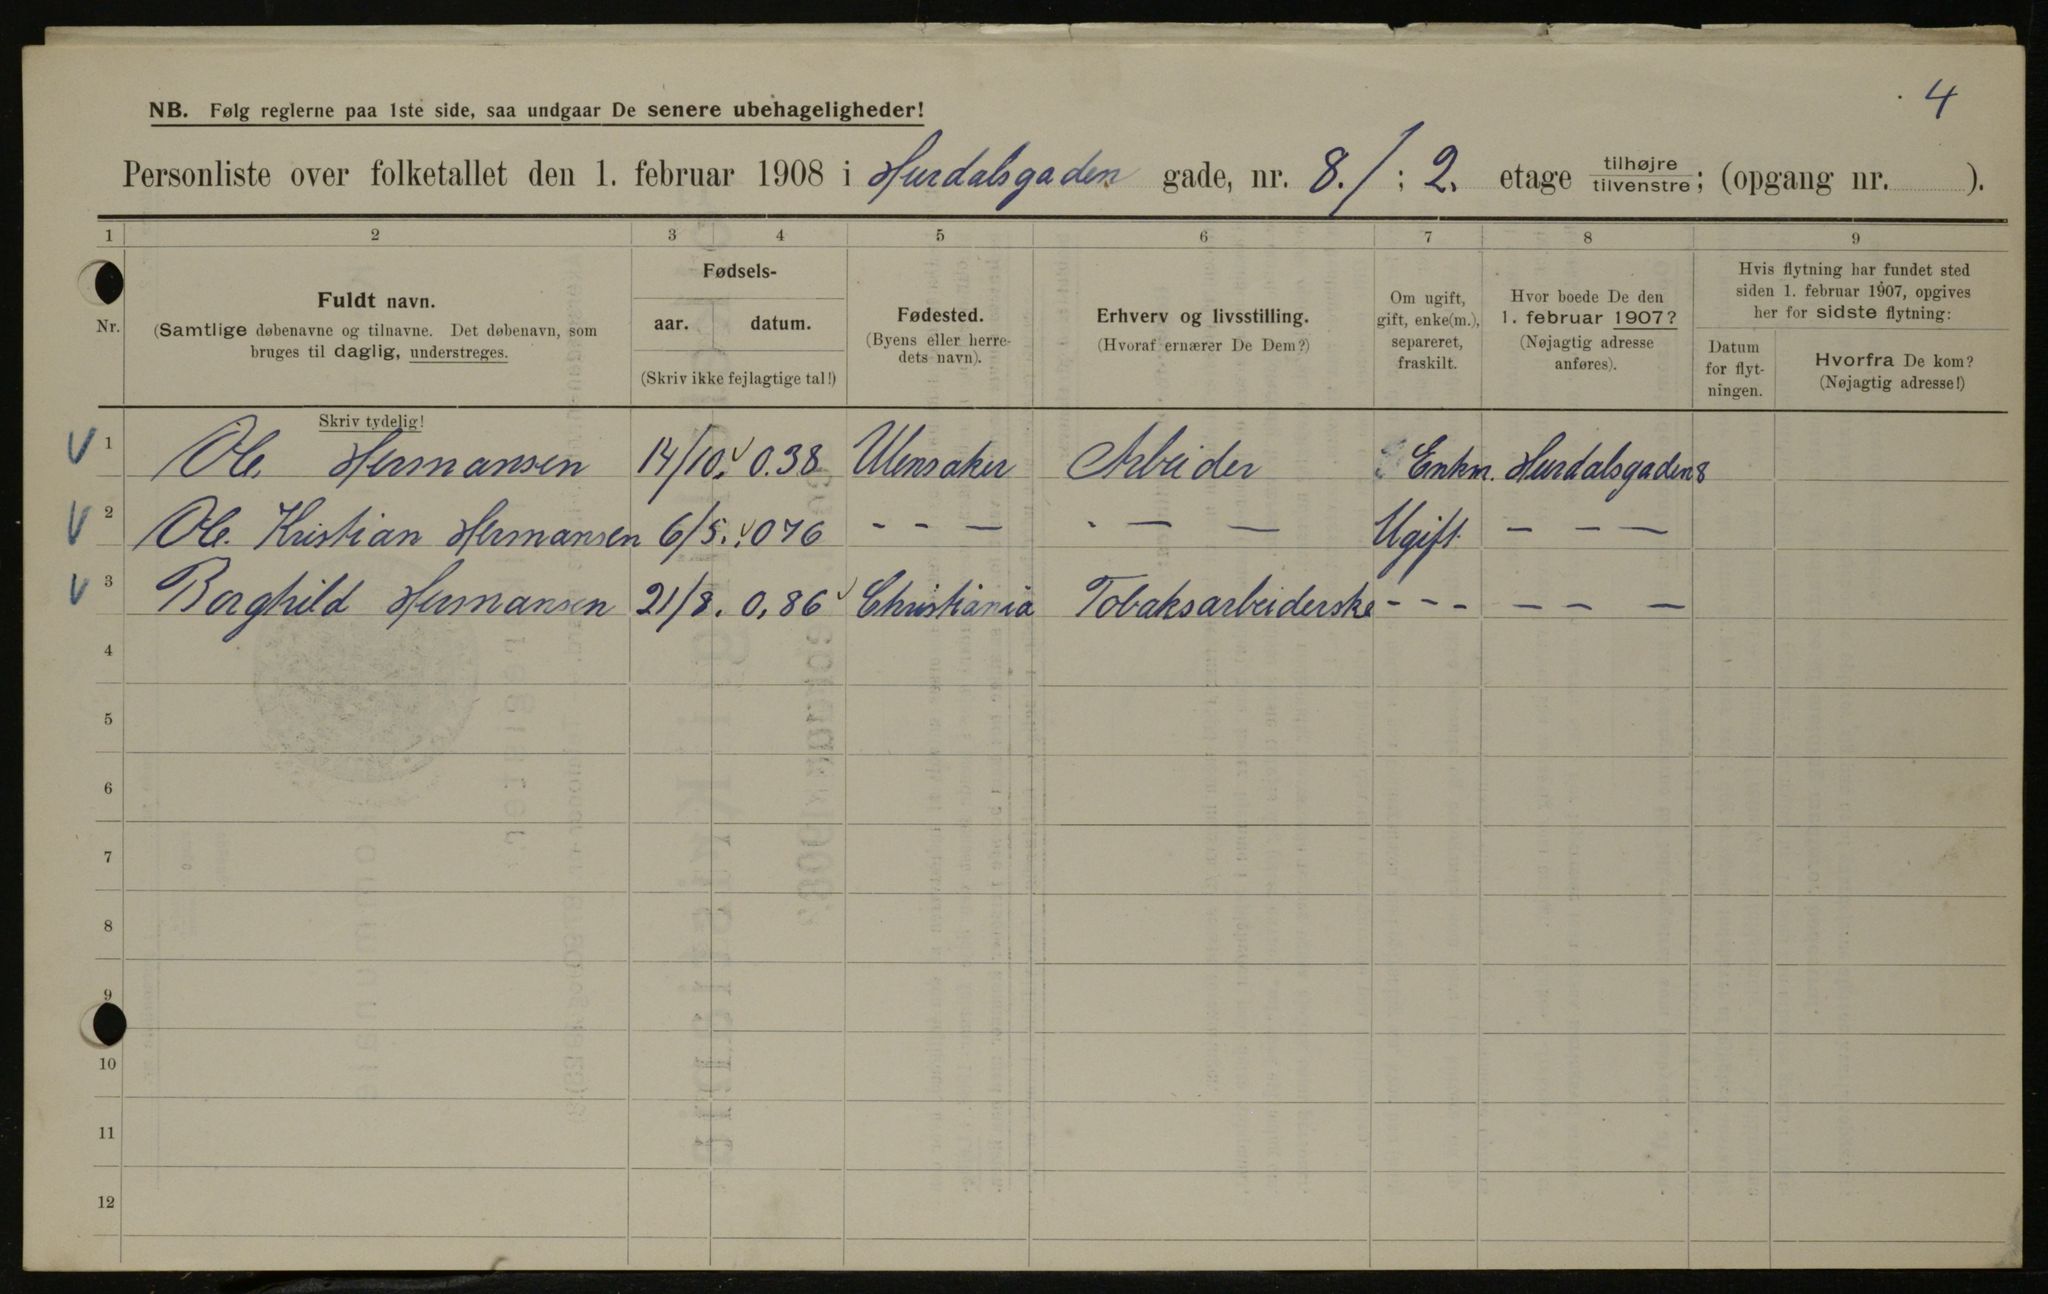 4
NB. Følg reglerne paa 1ste side, saa undgaar De senere ubehageligheder!
Personliste over folketallet den 1. februar 1908 i Hurdalsgaden gade, nr. 8./ ; 2. etage tilhøjre tilvenstre; (opgang nr. ).
1 2 3 4 5 6 7 8 9
Nr.
Fuldt navn.
(Samtlige døbenavne og tilnavne. Det døbenavn, som
bruges til daglig, understreges.
Skriv tydelig!
Fødsels-
aar. datum.
(Skriv ikke fejlagtige tal!)
Fødested.
(Byens eller herre-
dets navn).
Erhverv og livsstilling.
(Hvoraf ernærer De Dem?)
Om ugift,
gift, enke(m.),
separeret,
fraskilt.
Hvor boede De den
1. februar 1907?
(Nøjagtig adresse
anføres).
Hvis flytning har fundet sted
siden 1. februar 1907, opgives
her for sidste flytning:
Datum
for flyt-
ningen.
Hvorfra De kom?
(Nøjagtig adresse!)
V 1 Ole. Hermansen 14/10. 0.38 Ulensaker Arbeider Enkm. Hurdalsgaden 8
V 2 Ole. Kristian Hermansen 6/5. 076 - - - - - - Ugift. - - -
V 3 Borghild Hermansen 21/8. 0,86 Christiania Tobaksarbeiderske - - - - - -
4
5
6
7
8
9
10
11
12